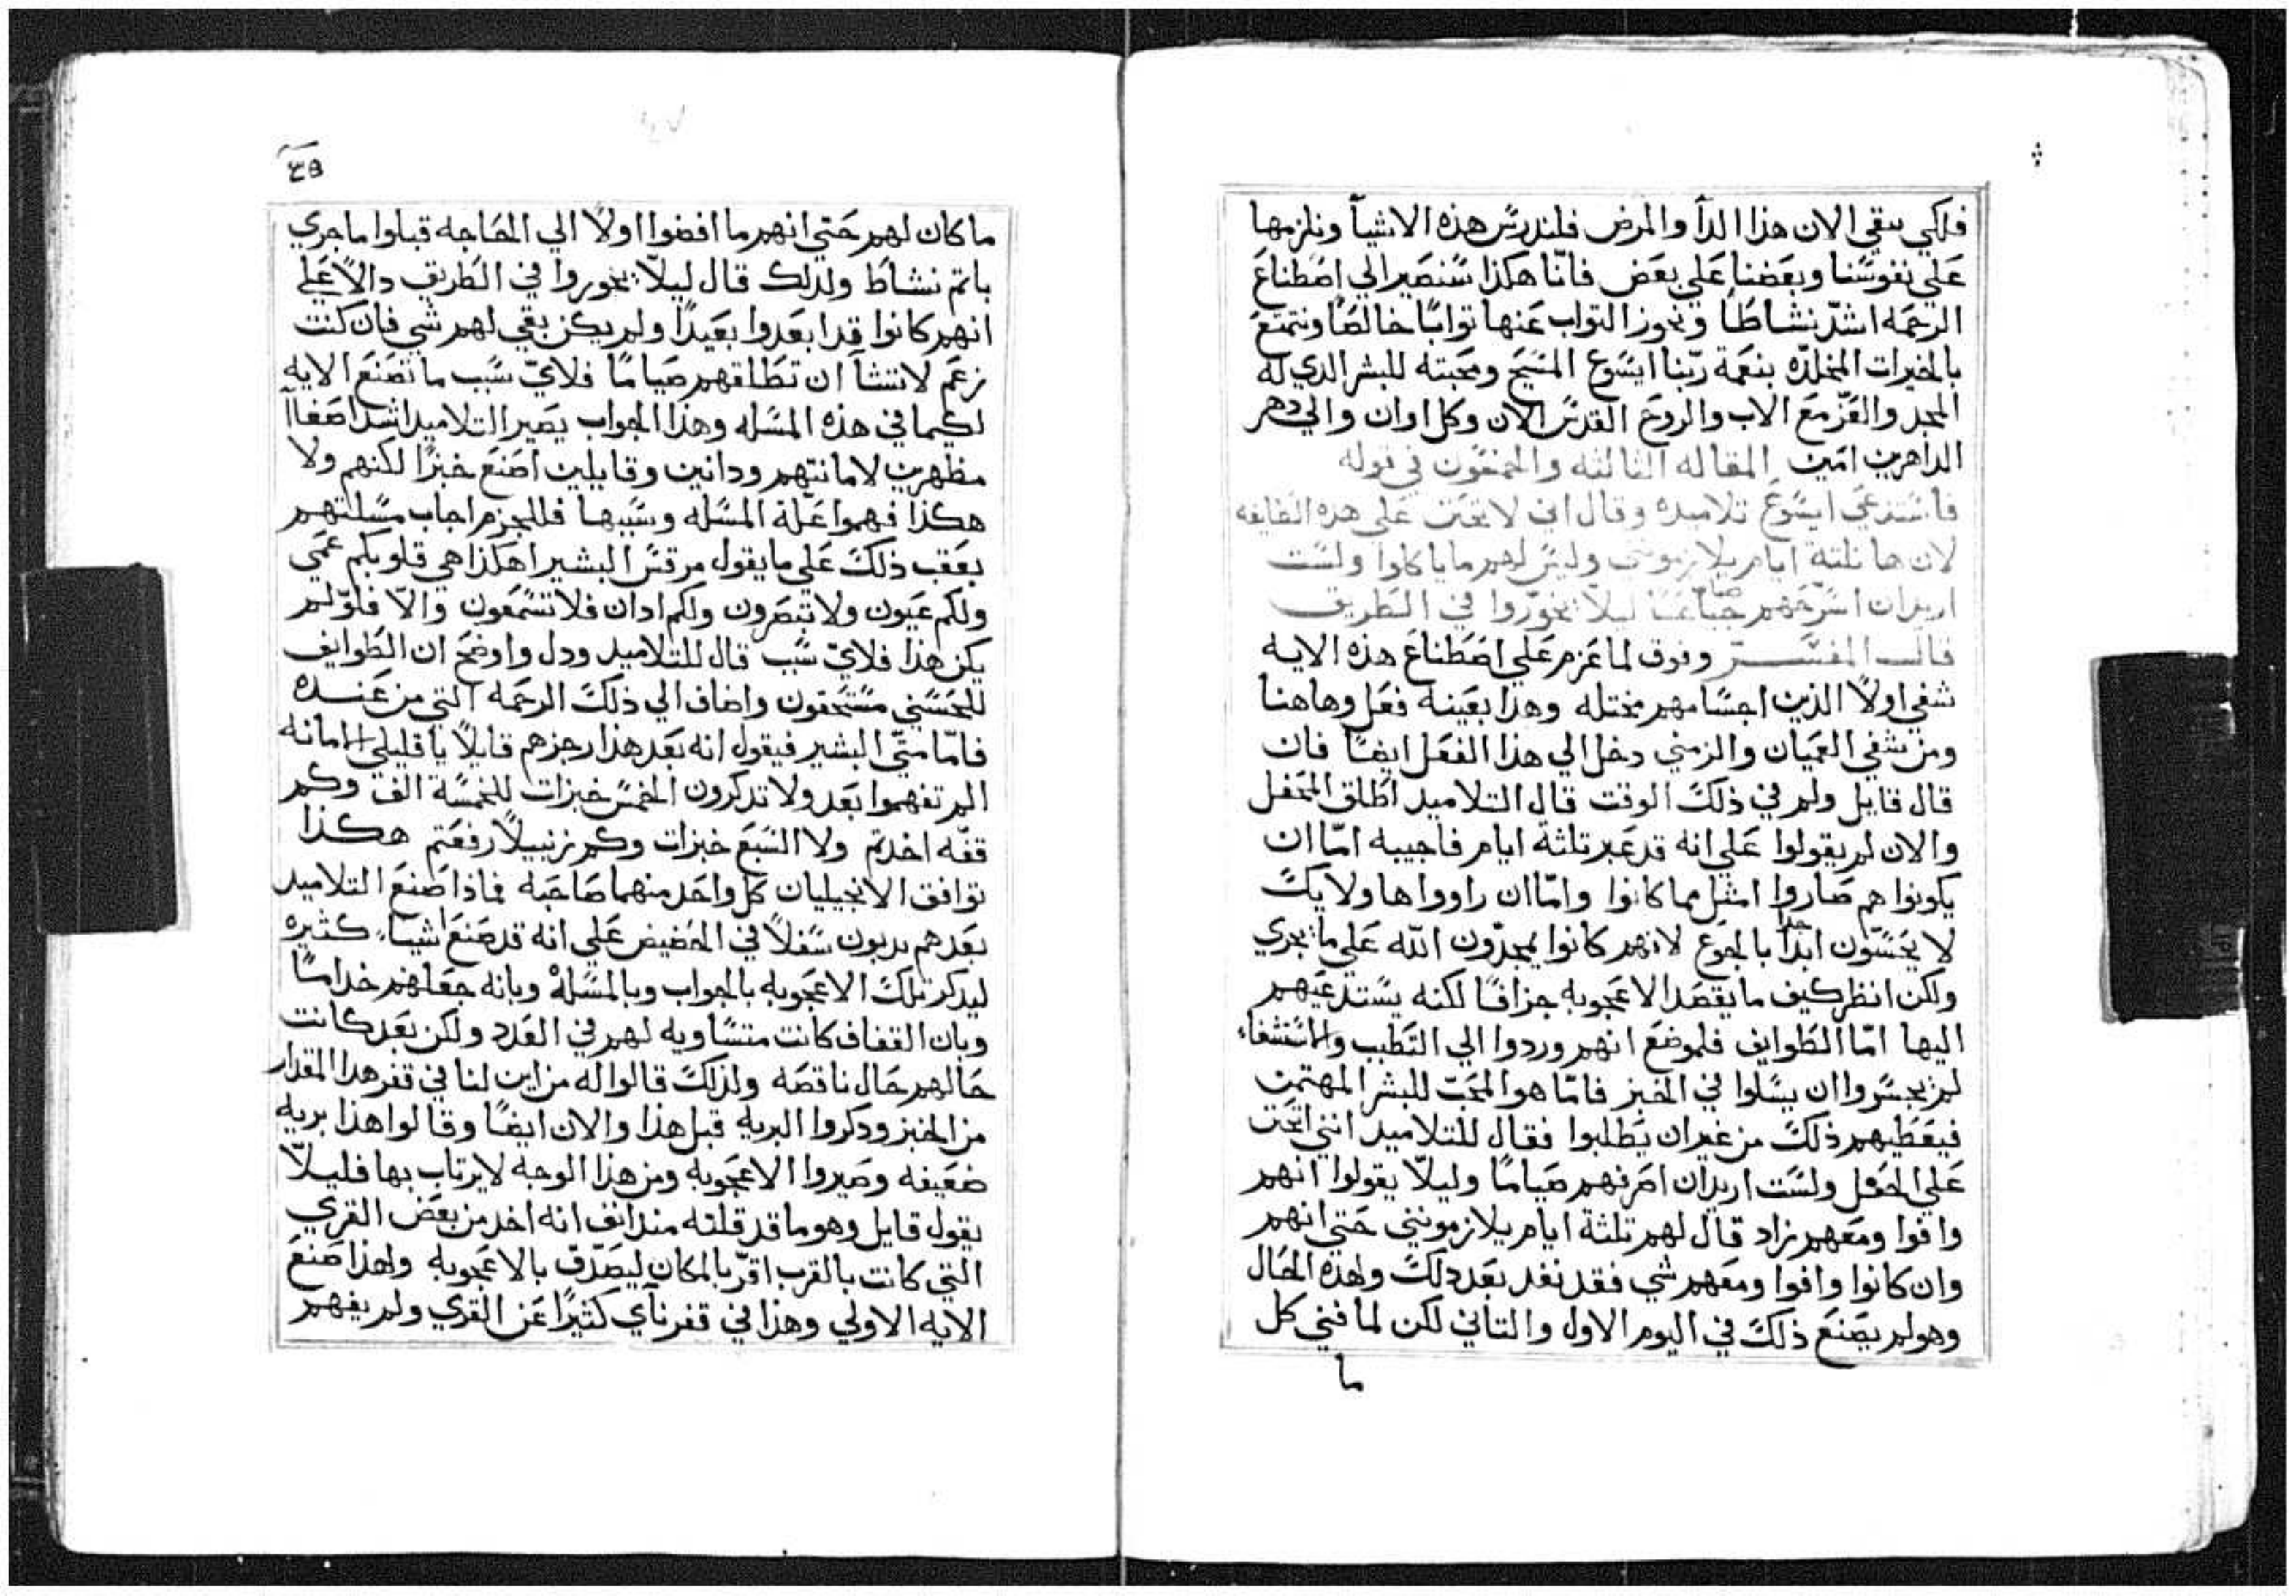 فلكي يبقي الان هذا الدآ والمرض فلندرس هذه الاشيآ ونلزمها
علي نفوسنا وبعضنا علي بعض فانّا هكذا سنصير الي اصطناع
الرحمه اشدّ نشاطًا ونحوز الثواب عنها ثوابًا خالصًا ونتمتع
بالخيرات المخلدّه بنعمة ربّنا ايسوع المسيح ومحبته للبشر الدي له
المجد والعزّ مع الاب والروح القدس الان وكل اوان والي دهر
الداهرين امين المقاله الثالثه والخمسون في قوله
فاستدعي ايسوع تلاميده وقال اني لاتحنن علي هده الطايفه
لان ها تلتة ايام يلازموني وليس لهم ما ياكلوا ولست
اريد ان اسرّحهم صيامًا ليلّا يخورّوا في الطريق
قال المفسر وفوق لما عزم علي اصطناع هذه الايه
شفي اولًا الذين اجسامهم مختله وهذا بعينه فعل وهاهنا
ومن شفي العميان والزمني دخل الي هذا الفعل ايضًا فان
قال قايل ولم في ذلك الوقت قال التلاميد اطلق المحفل
والان لم يقولوا علي انه قد عبر تلثة ايام فاجيبه امّا ان
يكونوا هم صاروا امثل مما كانوا وامّا ان راووا هاولايك
لا يحسّون ابدًا جدًا بالجوع لانهم كانوا يمجدّون الله علي ما يجري
ولكن انظر كيف ما يقصد الاعجوبه جزافًا لكنه يستدعيهم
اليها امّا الطوايف فلموضع انهم وردوا الي التطبب والاستشفاء
لم يجسروا ان يسلوا في الخبز فامّا هو المحبّ للبشر المهتمن
فيعطيهم ذلك من غير ان يطلبوا فقال للتلاميد انني اتحنن
علي الحفل ولست اريد ان اصرفهم صيامًا وليلّا يقولوا انهم
وافوا ومعهم زاد قال لهم تلثة ايام يلازمونني حتي انهم
وان كانوا وافوا ومعهم شي فقد نفد بعد دلك ولهذه الحال
وهو لم يصنع ذلك في اليوم الاول والتاني لكن لما فني كل
ما
٤٥
ما كان لهم حتي انهم ما افضوا اولًا الي الحاجه قبلوا ما جري
باتم نشاط ولدلك قال ليلّا يخوروا في الطريق دالًا علي
انهم كانوا قد ابعدوا بعيدًا ولم يكن بقي لهم شي فان كنت
زعم لا تنشآ ان تطلقهم صيامًا فلايّ سبب ما تصنع الايه
لكيما في هذه المسله وهذا الجواب يصير التلاميد اشد اصغاآ
مظهرين لامانتهم ودانين وقايلين اصنع خبزًا لكنهم ولا
هكذا فهموا علّة المسله وسببها فللجزم اجاب مسلتهم
بعقب ذلك علي ما يقول مرقس البشير اهكذا هي قلوبكم عمي
ولكم عيون ولا تبصرون ولكم ادان فلا تسمعون والّا فلوّ لم
يكن هذا فلايّ سبب قال للتلاميد ودل واوضح ان الطوايف
للحسني مستحقون واضاف الي ذلك الرحمه التي من عنده
فامّا متّي البشير فيقول انه بعد هذا رجزهم قايلًا يا قليلي الامانه
الم تفهموا بعد ولا تدكرون الخمس خبزات للخمسة الف وكم
قفّه اخدتم ولا السبع خبزات وكم زنبيلًا رفعتم هكذا
توافق الانجيليان كل واحد منهما صاحبه فماذا صنع التلاميد
بعدهم يدبون سفلًا في الحضيض علي انه قد صنع اشياء كثيره
ليدكر تلك الاعجوبه بالجواب وبالمسلة وبانه جعلهم خدامًا
وبان القفاف كانت متساويه لهم في العدد ولكن بعد كانت
حالهم حال ناقصه ولذلك قالوا له من اين لنا في قفر هدا المقدار
من الخبز ودكروا البريه قبل هذا والان ايضًا وقالوا هذا بريه
ضعيفه وصيروا الاعجوبه ومن هذا الوجه لا يرتاب بها فليلّا
يقول قايل وهو ما قد قلته مند انف انه اخد من بعض القري
التي كانت بالقرب اقرّ بالمكان ليصدّق بالاعجوبه ولهذا صنع
الايه الاولي وهذا في قفر نآي كثيرًا عن القري ولم يفهم